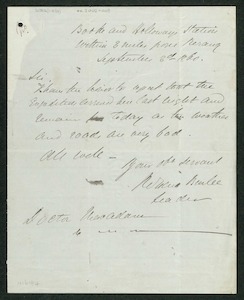 Booth and Holloways Station
within 3 miles from Perang
September 8th 1860.
Sir,
I have the honor to report that the
Expedition arrived here last night and
remain to day as the weather
and roads are very bad.
All well —
Your obt servant
Leader
Doctor Macadam